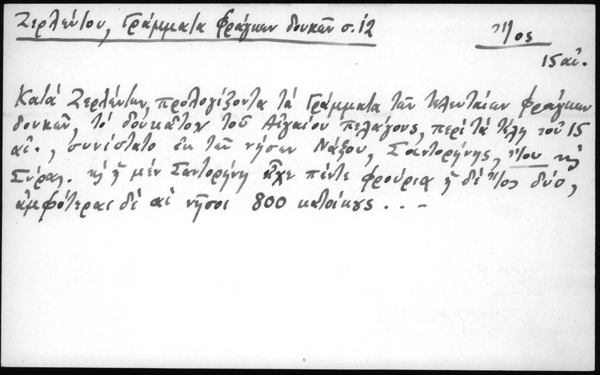 Ζερλέντου, Γράμματα Φράγκων δουκῶν σ. 12
Ἴος
15 αἰ.
Κατά Ζερλέντην, προλογίζοντα τά Γράμματα τῶν τελευταίων Φράγκων
δουκῶν, τό δουκᾶτον τοῦ Αἰγαίου πελάγους, περί τά τέλη τοῦ 15
αἰ., συνίστατο ἐκ τῶν νήσων Νάξου, Σαντορήνης, Ἴου κ
Σύρας. κ ἡ μέν Σαντορήνη εἶχε πέντε φρούρια ἡ δέ Ἴος δύο,
ἀμφότεραι δέ αἱ νῆσοι 800 κατοίκους . . —